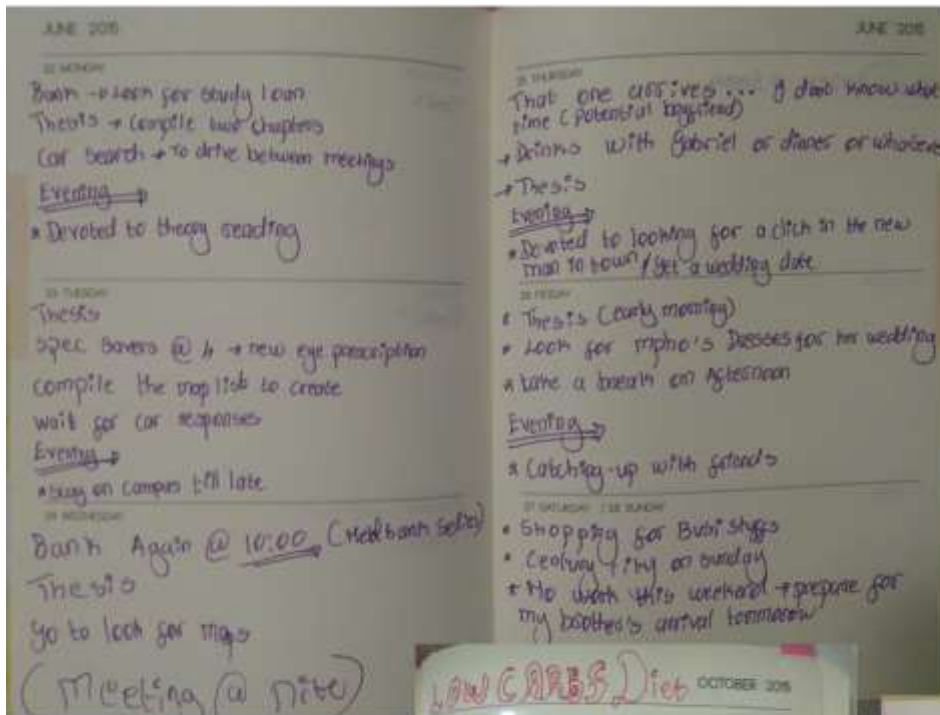 JUNE 2015
22 MONDAY
Bank → Look for study loan
Thesis → Compile two chapters
Car search → To drive between meetings
Evening →
* Devoted to theory reading
23 TUESDAY
Thesis
Spec Savers @ 4 → new eye prescription
compile the map list to create
wait for car responses
Evening →
* Stay on campus till late
24 WEDNESDAY
Bank Again @ 10:00 →
Thesis
go to look for maps
(Meeting @ nite)
JUNE 2015
25 THURSDAY
That one arrives... I dont know what
time (Potential boyfriend)
→ Drinks with Gabriel or dinner or whatever
→ Thesis
Evening →
* Devoted to looking for a click in the new
man in town / get a wedding date
26 FRIDAY
* Thesis (early morning)
* Look for mpho's Dresses for her wedding
* take a break on Afternoon
Evening →
* Catching-up with friends
27 SATURDAY / 28 SUNDAY
* Shopping for stuffs
* Century City on Sunday
* No work this weekend → prepare for
my brother's arrival tommorow
LOW CARBS Diet OCTOBER 2015